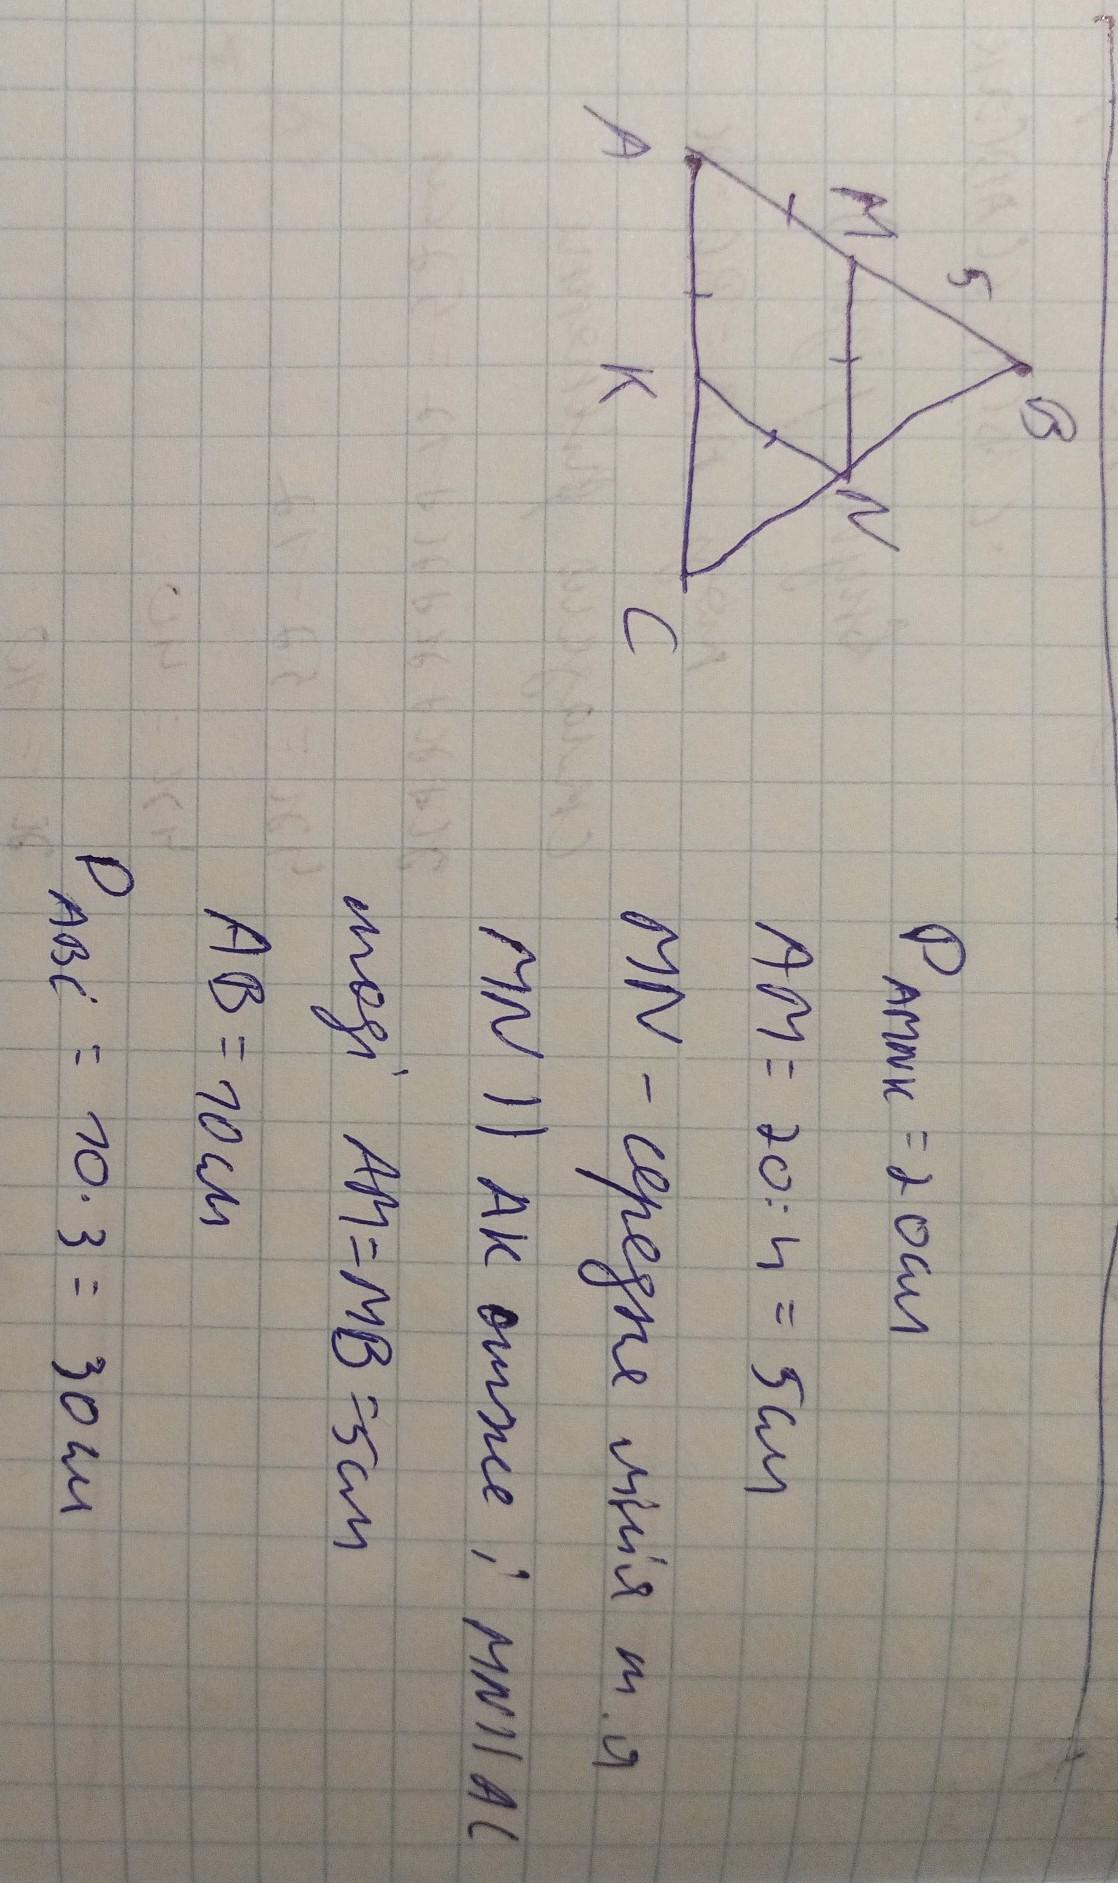 B
5
M
N
A
K
C
P AMNK = 20см
AM = 20 : 4 = 5см
MN - середне лінія т. я
MN || AK отже і MN || AC
тоді AM = MB = 5см
AB = 10см
P ABC = 10 . 3 = 30см